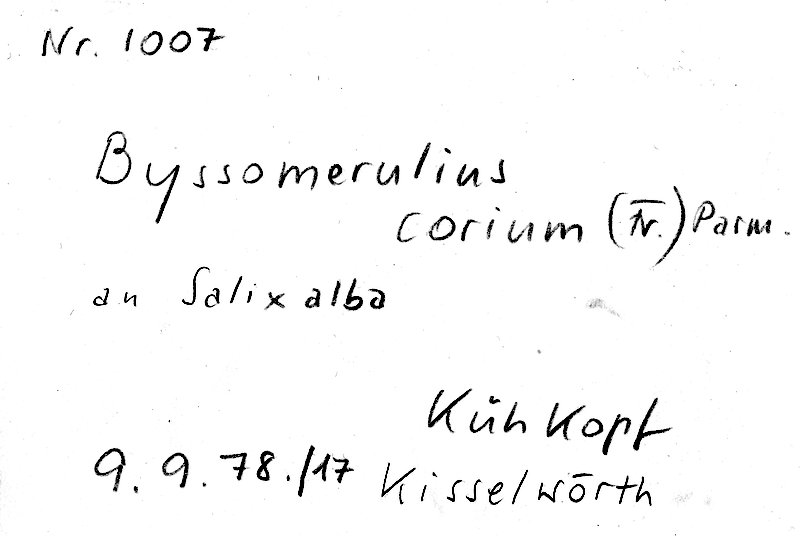 Nr. 1007
Byssomerulius
corium (Fr.) Parm.
an Salix alba
Kühkopf
9. 9. 78./17 Kisselwörth